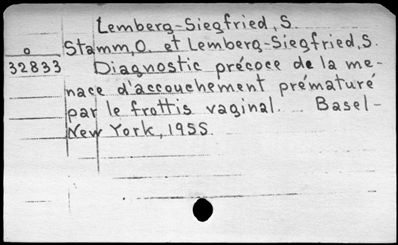 Lemberg-Siegfried, S.
o Stamm, O. et Lemberg-Siegfried, S.
32833 Diagnostic précoce de la me-
nace d'accouchement prématuré
par le frottis vaginal. Basel-
New York, 1955.